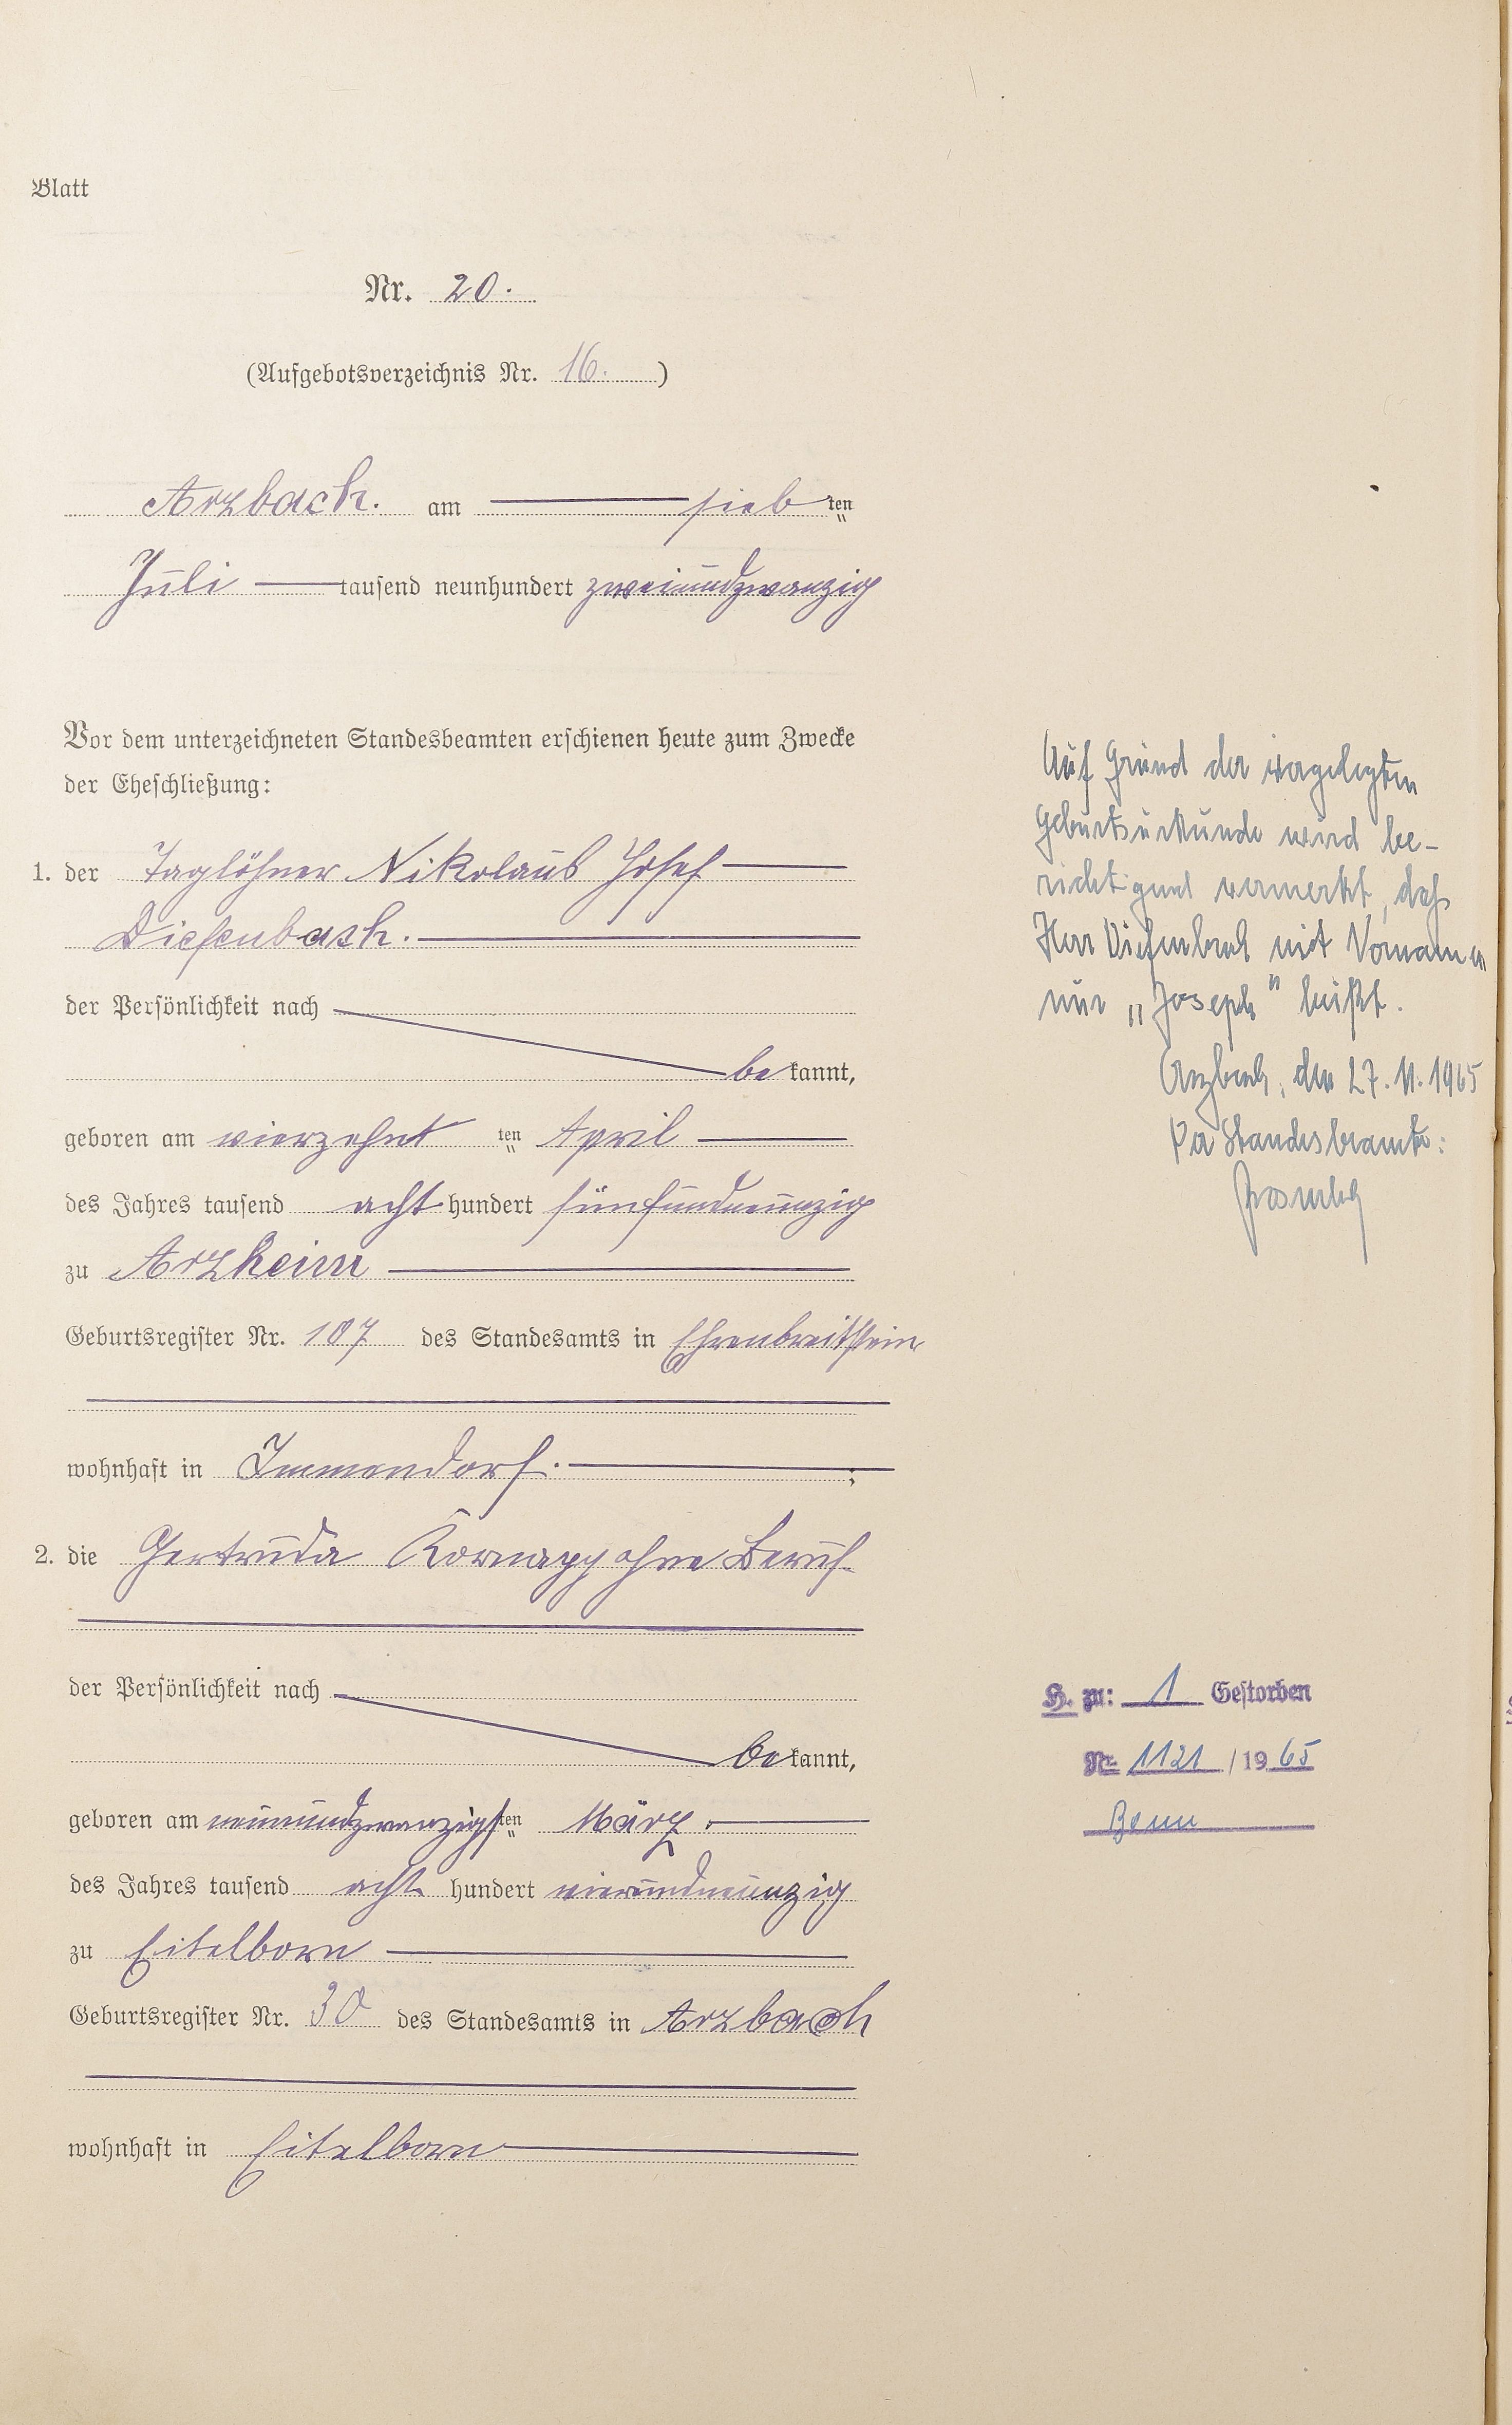 Blatt
Nr. 20.
(Aufgebotsverzeichnis Nr. 16.)
Arzbach. am sieb ten
Juli tausend neunhundert zweiundzwanzig
Vor dem unterzeichneten Standesbeamten erschienen heute zum Zwecke
der Eheschließung:
1. der Taglöhner Nikolaus Josef
Diefenbach.
der Persönlichkeit nach
be kannt,
geboren am vierzehnt ten April
des Jahres tausend acht hundert fünfundneunzig
zu Arzheim
Geburtsregister Nr. 187 des Standesamts in Ehrenbreitstein
wohnhaft in Immendorf. ;
2. die Gertruda Körnapp ohne Beruf
der Persönlichkeit nach
be kannt,
geboren am neunundzwanzigsten März
des Jahres tausend acht hundert vierundneunzig
zu Eitelborn
Geburtsregister Nr. 30 des Standesamts in Arzbach
wohnhaft in Eitelborn
Auf Grund der vorgelegten
Geburtsurkunde wird be-
richtigend vermerkt, daß
Herr Diefenbach mit Vornamen
nur „Joseph" heißt.
Arzbach, den 27.11.1965
Der Standesbeamte:
H. zu: 1 Gestorben
Nr. 1121 / 19 65
Bonn